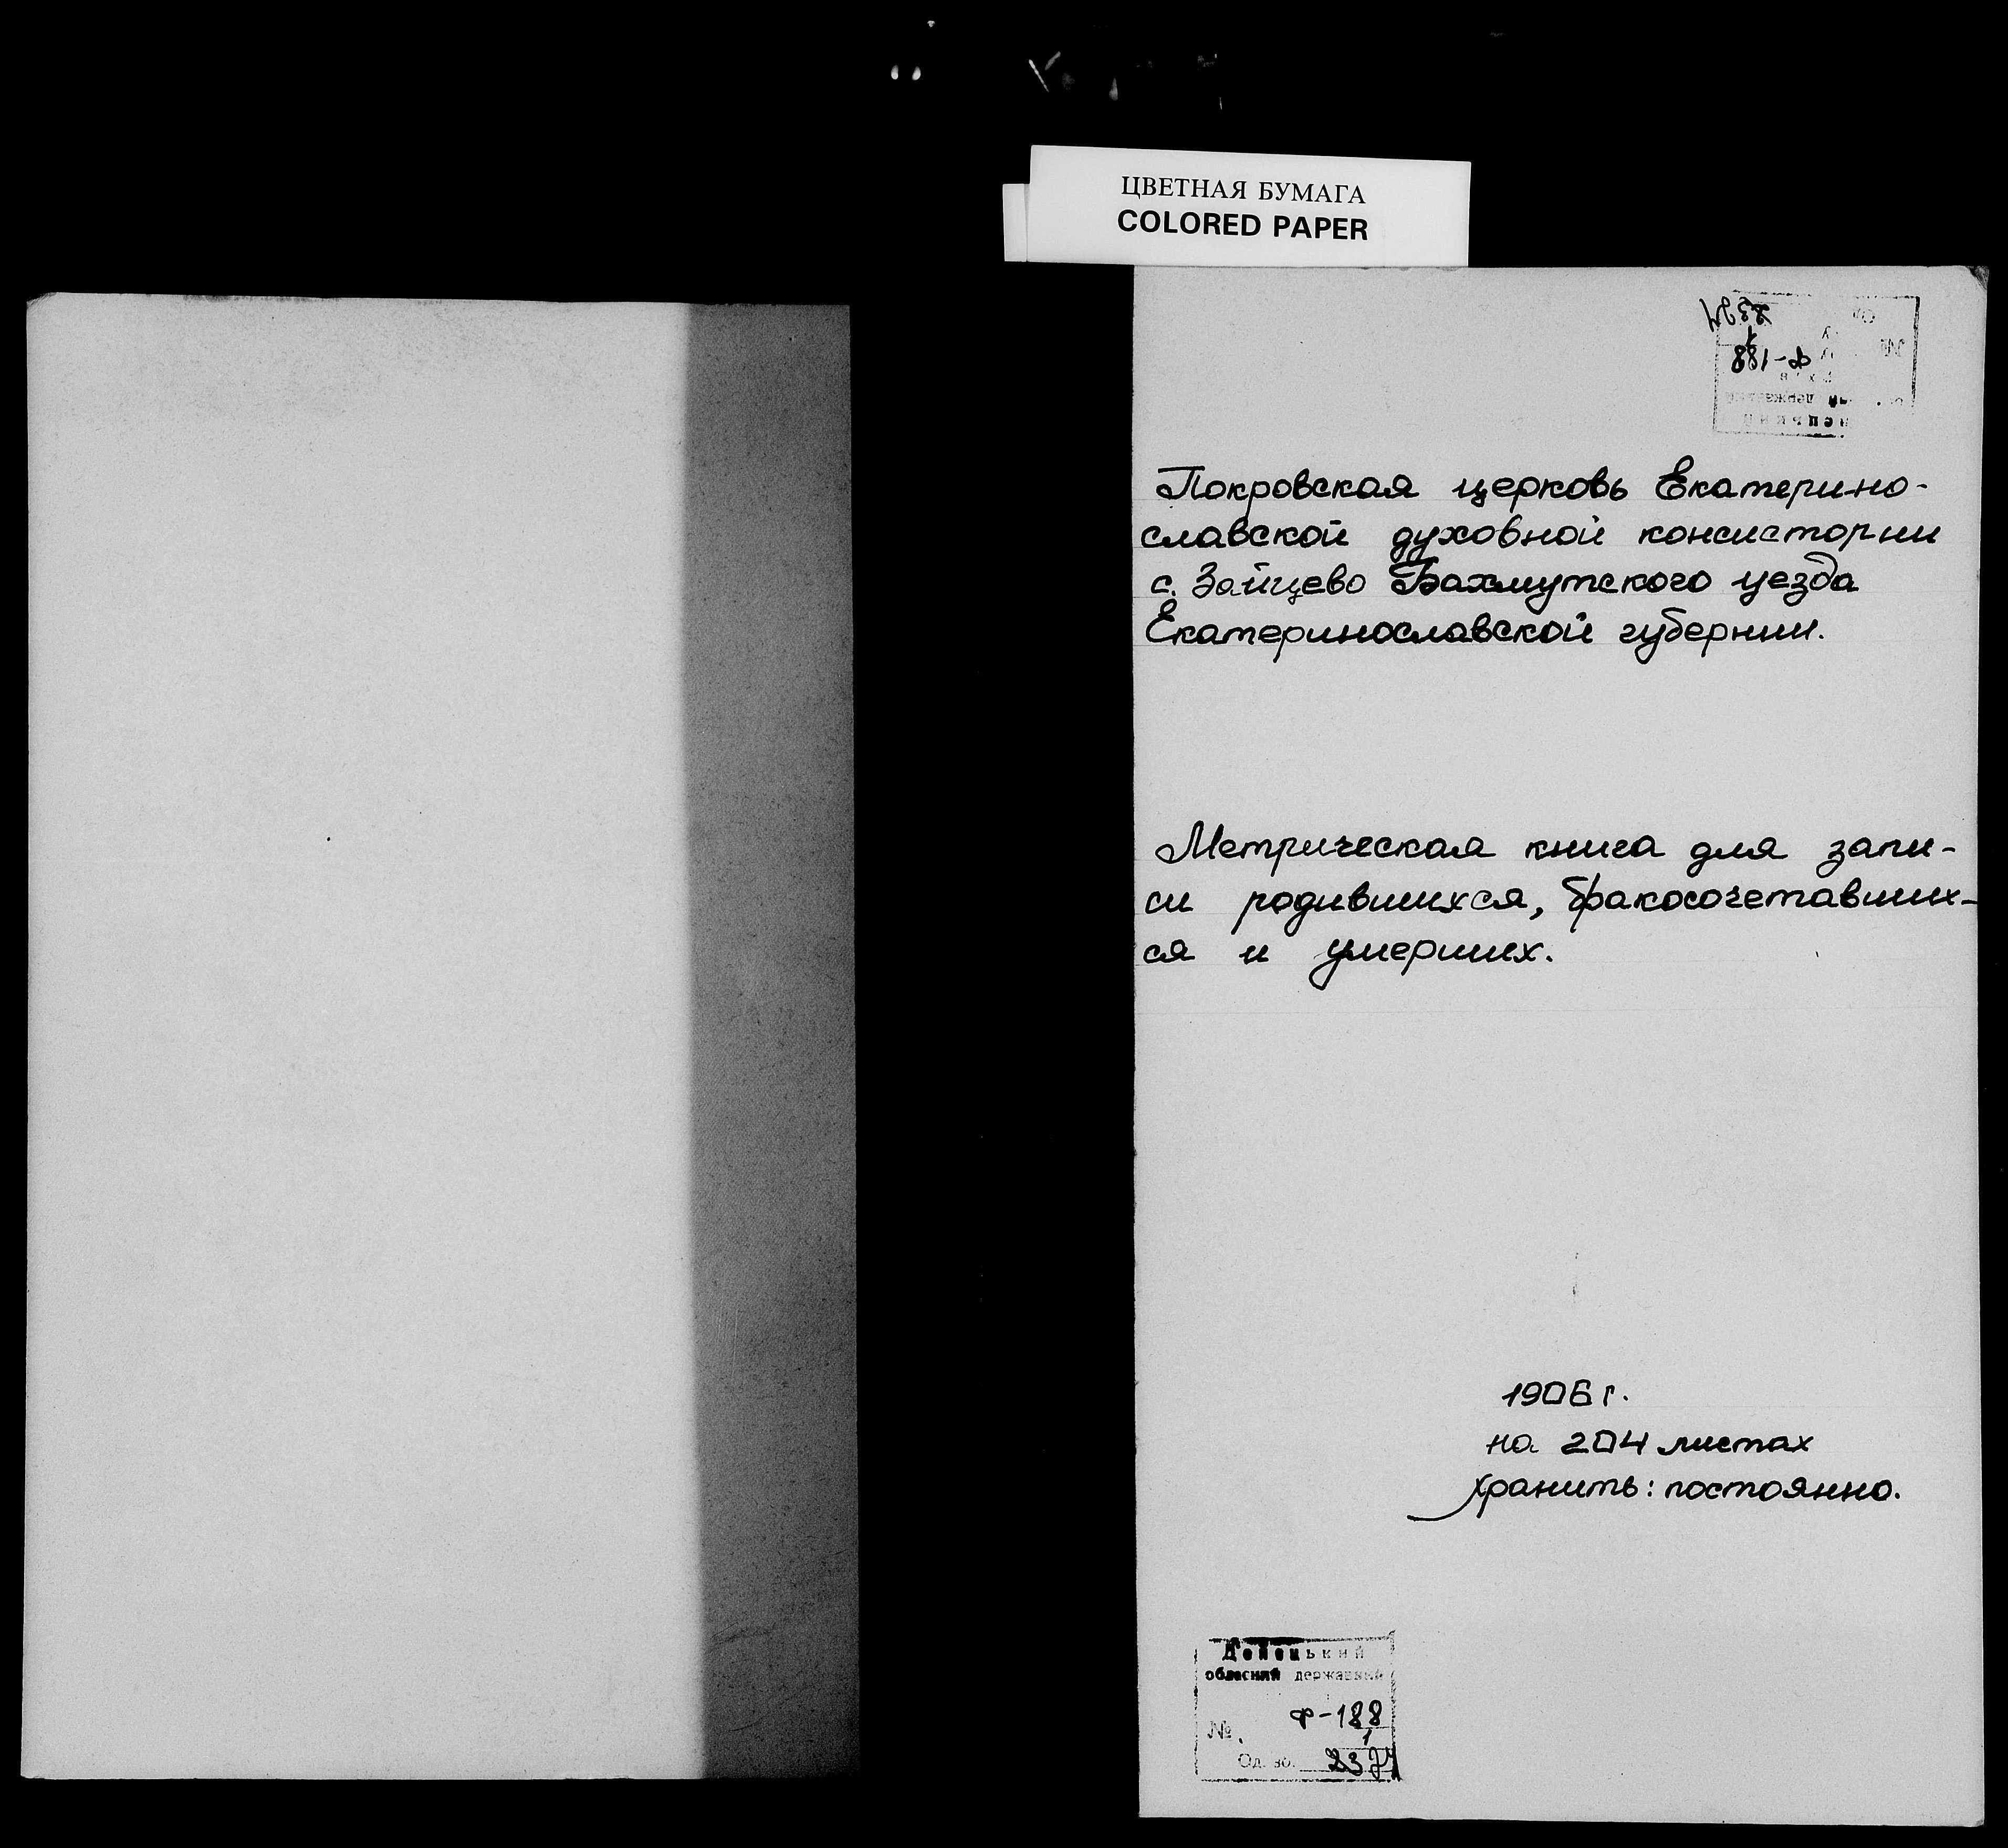 ЦВЕТНАЯ БУМАГА
COLORED PAPER
Ф-188
1
Покровская церковь Екатерино-
славской духовной консистории
с. Зайцево Бахмутского уезда
Екатеринославской губернии.
Метрическая книга для запи-
си родившихся, бракосочетавших-
ся и умерших.
1906 г.
на 204 листах
хранить: постоянно.
Донецький
обласний державний
№ Ф-188
1
Од. зб.